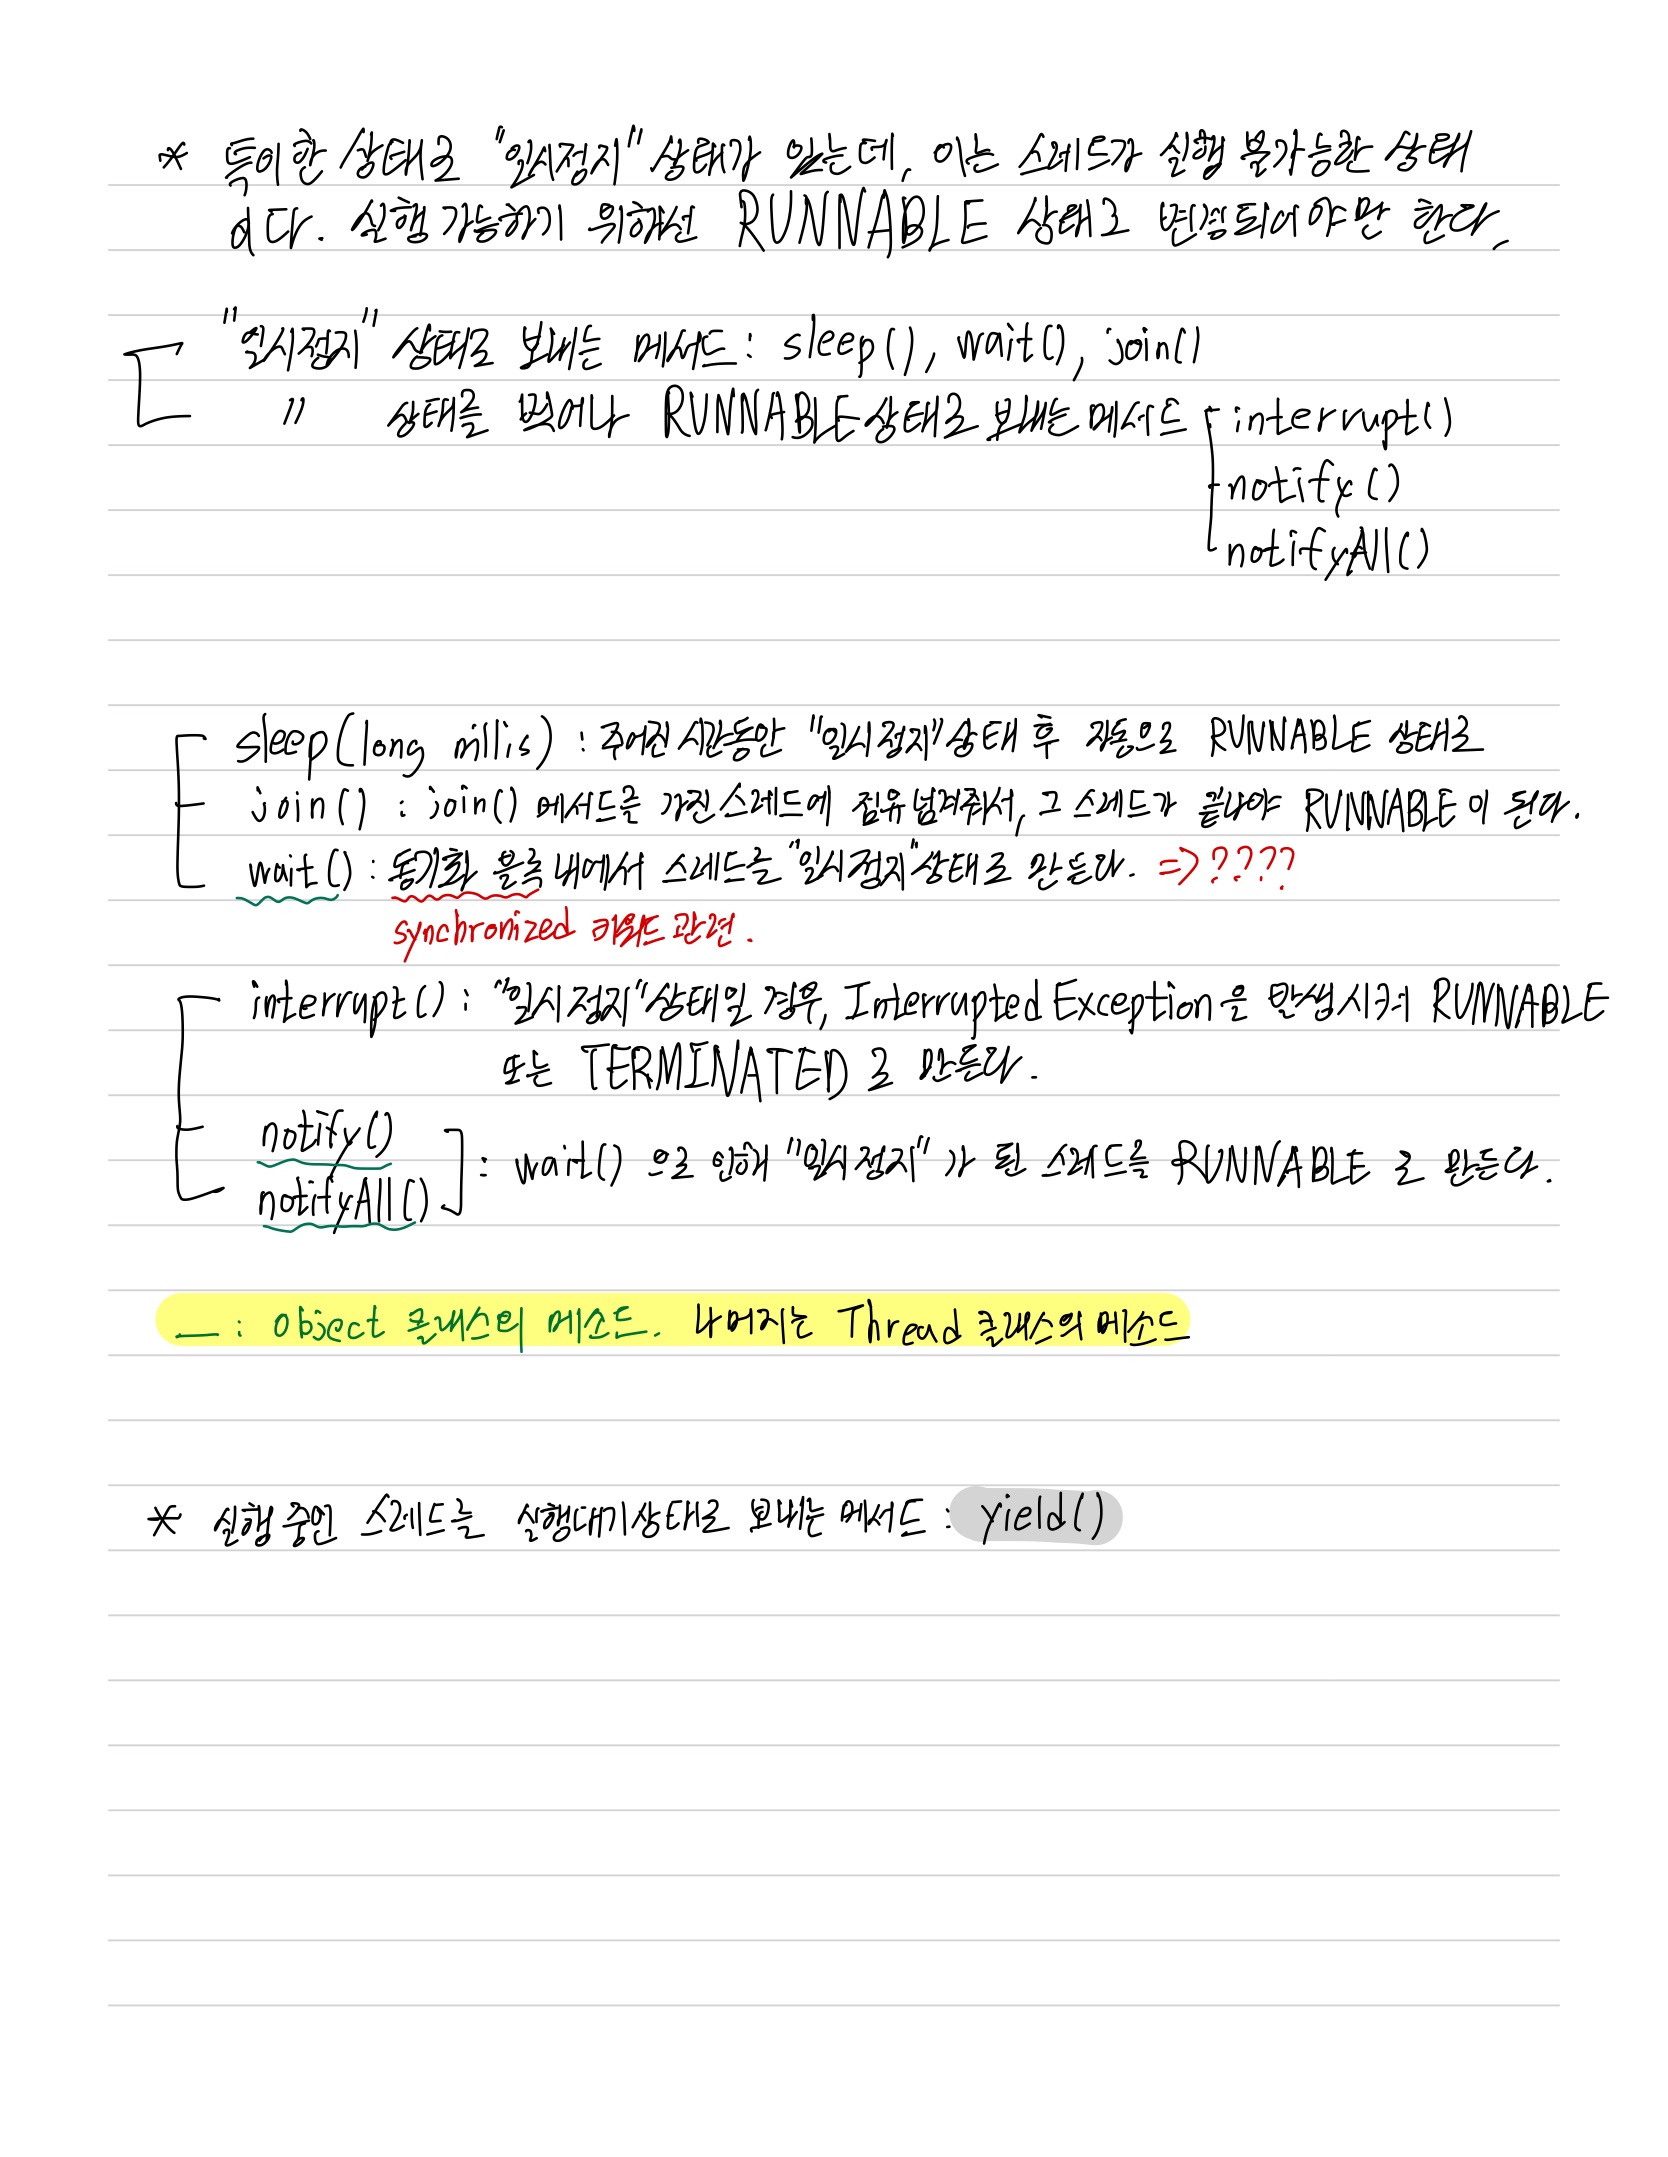 * 특이한 상태로 "일시정지" 상태가 있는데, 이는 스레드가 실행 불가능한 상태
이다. 실행 가능하기 위해선 RUNNABLE 상태로 변경되어야만 한다.
"일시정지" 상태로 보내는 메서드 : sleep(), wait(), join()
" 상태를 벗어나 RUNNABLE 상태로 보내는 메서드 - interrupt()
- notify()
- notifyAll()
sleep(long millis) : 주어진 시간동안 "일시정지" 상태 후 자동으로 RUNNABLE 상태로
join() : join() 메서드를 가진 스레드에 점유 넘겨줘서, 그 스레드가 끝나야 RUNNABLE이 된다.
wait() : 동기화 블록 내에서 스레드를 "일시정지" 상태로 만든다. => ????
synchronized 키워드 관련.
interrupt() : "일시정지" 상태일 경우, Interrupted Exception을 발생시켜 RUNNABLE
또는 TERMINATED 로 만든다.
notify()
notifyAll() : wait() 으로 인해 "일시정지" 가 된 스레드를 RUNNABLE 로 만든다.
_ : Object 클래스의 메소드. 나머지는 Thread 클래스의 메소드
* 실행 중인 스레드를 실행대기상태로 보내는 메서드 : yield()